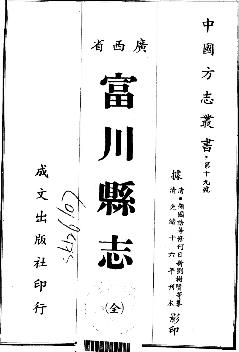 中國方志叢書·第十九號
據清·顧國誥等修何日新劉樹賢等纂
清光緒十六年刊本
影印
廣西省
富川縣志
(全)
成文出版社印行